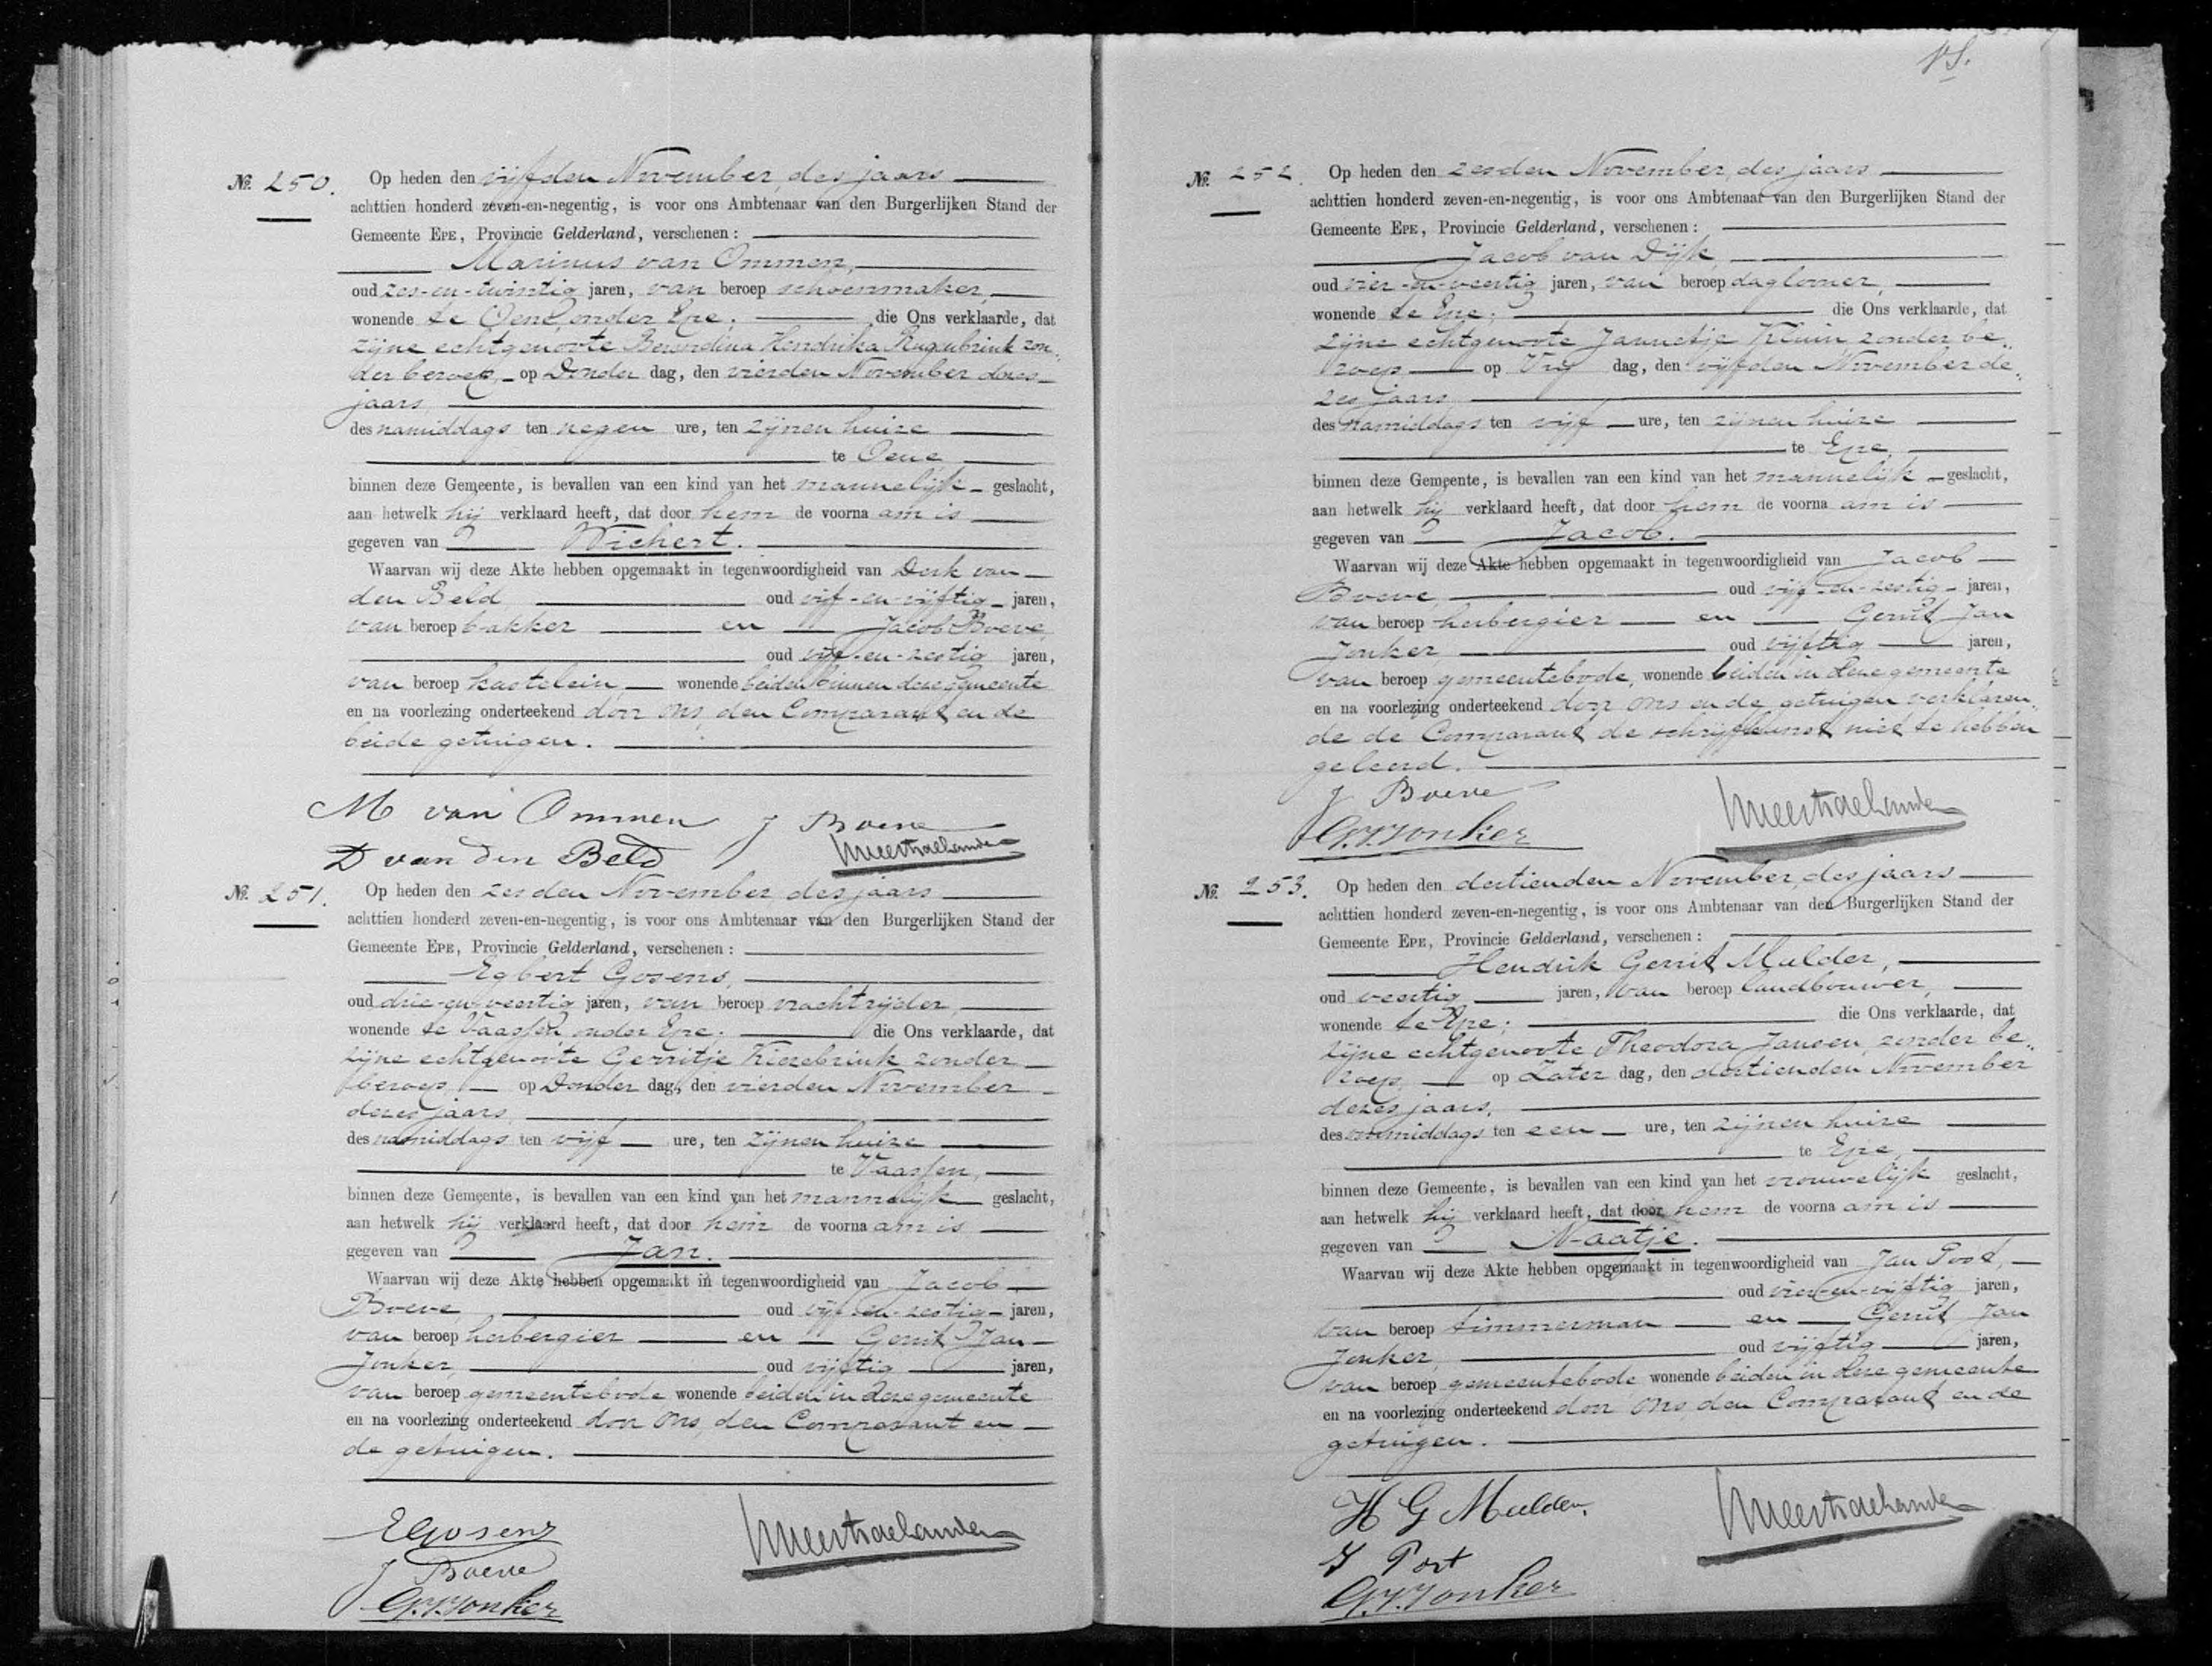 No. 250. Op heden den vijfden November, des jaars
achttien honderd zeven-en-negentig, is voor ons Ambtenaar van den Burgerlijken Stand der
Gemeente EPE, Provincie Gelderland, verschenen:
Marinus van Ommen,
oud zes-en-twintig jaren, van beroep schoenmaker,
wonende te Oene, onder Epe; die Ons verklaarde, dat
zijne echtgenoote Berendina Hendrika Rugenbrink zon„
der beroep, op Donder dag, den vierden November dezes
jaars
des namiddags ten negen ure, ten zijnen huize
te Oene
binnen deze Gemeente, is bevallen van een kind van het mannelijk geslacht,
aan hetwelk hij verklaard heeft, dat door hem de voorna am is
gegeven van Wichert.
Waarvan wij deze Akte hebben opgemaakt in tegenwoordigheid van Derk van
den Beld, oud vijf-en-vijftig jaren,
van beroep bakker en Jacob Boeve,
oud vijf-en-zestig jaren,
van beroep kastelein, wonende beiden binnen deze gemeente
en na voorlezing onderteekend door Ons, den Comparant en de
beide getuigen.
M van Ommen J Boeve
D van den Beld
No. 251. Op heden den zesden November des jaars
achttien honderd zeven-en-negentig, is voor ons Ambtenaar van den Burgerlijken Stand der
Gemeente EPE, Provincie Gelderland, verschenen:
Egbert Gosens,
oud drie-en-veertig jaren, van beroep vrachtrijder,
wonende te Vaassen, onder Epe; die Ons verklaarde, dat
zijne echtgenoote Gerritje Kiezebrink zonder
beroep, op Donder dag, den vierden November
dezes jaars,
des namiddags ten vijf ure, ten zijnen huize
te Vaassen,
binnen deze Gemeente, is bevallen van een kind van het mannelijk geslacht,
aan hetwelk hij verklaard heeft, dat door hem de voorna am is
gegeven van Jan.
Waarvan wij deze Akte hebben opgemaakt in tegenwoordigheid van Jacob
Boeve, oud vijf-en-zestig jaren,
van beroep herbergier en Gerrit Jan
Jonker, oud vijftig jaren,
van beroep gemeentebode wonende beiden in deze gemeente
en na voorlezing onderteekend door Ons, den Comparant en
de getuigen.
E Gosens
J Boeve
G.J. Jonker
No. 252. Op heden den zesden November, des jaars
achttien honderd zeven-en-negentig, is voor ons Ambtenaar van den Burgerlijken Stand der
Gemeente EPE, Provincie Gelderland, verschenen:
Jacob van Dijk,
oud vier-en-veertig jaren, van beroep daglooner,
wonende te Epe; die Ons verklaarde, dat
zijne echtgenoote Jannetje Kluin zonder be„
roep op Vrij dag, den vijfden November de„
zes jaars
des namiddags ten vijf ure, ten zijnen huize
te Epe,
binnen deze Gemeente, is bevallen van een kind van het mannelijk geslacht,
aan hetwelk hij verklaard heeft, dat door hem de voorna am is
gegeven van Jacob.
Waarvan wij deze Akte hebben opgemaakt in tegenwoordigheid van Jacob
Boeve, oud vijf-en-zestig jaren,
van beroep herbergier en Gerrit Jan
Jonker oud vijftig jaren,
van beroep gemeentebode, wonende beiden in deze gemeente
en na voorlezing onderteekend door Ons en de getuigen verklaren„
de de Comparant de schrijfkunst niet te hebben
geleerd.
J Boeve
G.J. Jonker
No. 253. Op heden den dertienden November, des jaars
achttien honderd zeven-en-negentig, is voor ons Ambtenaar van den Burgerlijken Stand der
Gemeente EPE, Provincie Gelderland, verschenen:
Hendrik Gerrit Mulder,
oud veertig jaren, van beroep landbouwer,
wonende te Epe; die Ons verklaarde, dat
zijne echtgenoote Theodora Jansen, zonder be„
roep, op Zater dag, den dertienden November
dezes jaars,
des voormiddags ten een ure, ten zijnen huize
te Epe,
binnen deze Gemeente, is bevallen van een kind van het vrouwelijk geslacht,
aan hetwelk hij verklaard heeft, dat door hem de voorna am is
gegeven van Naatje.
Waarvan wij deze Akte hebben opgemaakt in tegenwoordigheid van Jan Post,
oud vier-en-vijftig jaren,
van beroep timmerman en Gerrit Jan
Jonker, oud vijftig jaren,
van beroep gemeentebode wonende beiden in deze gemeente
en na voorlezing onderteekend door Ons, den Comparant en de
getuigen.
H G Mulder.
J Post
G.J. Jonker